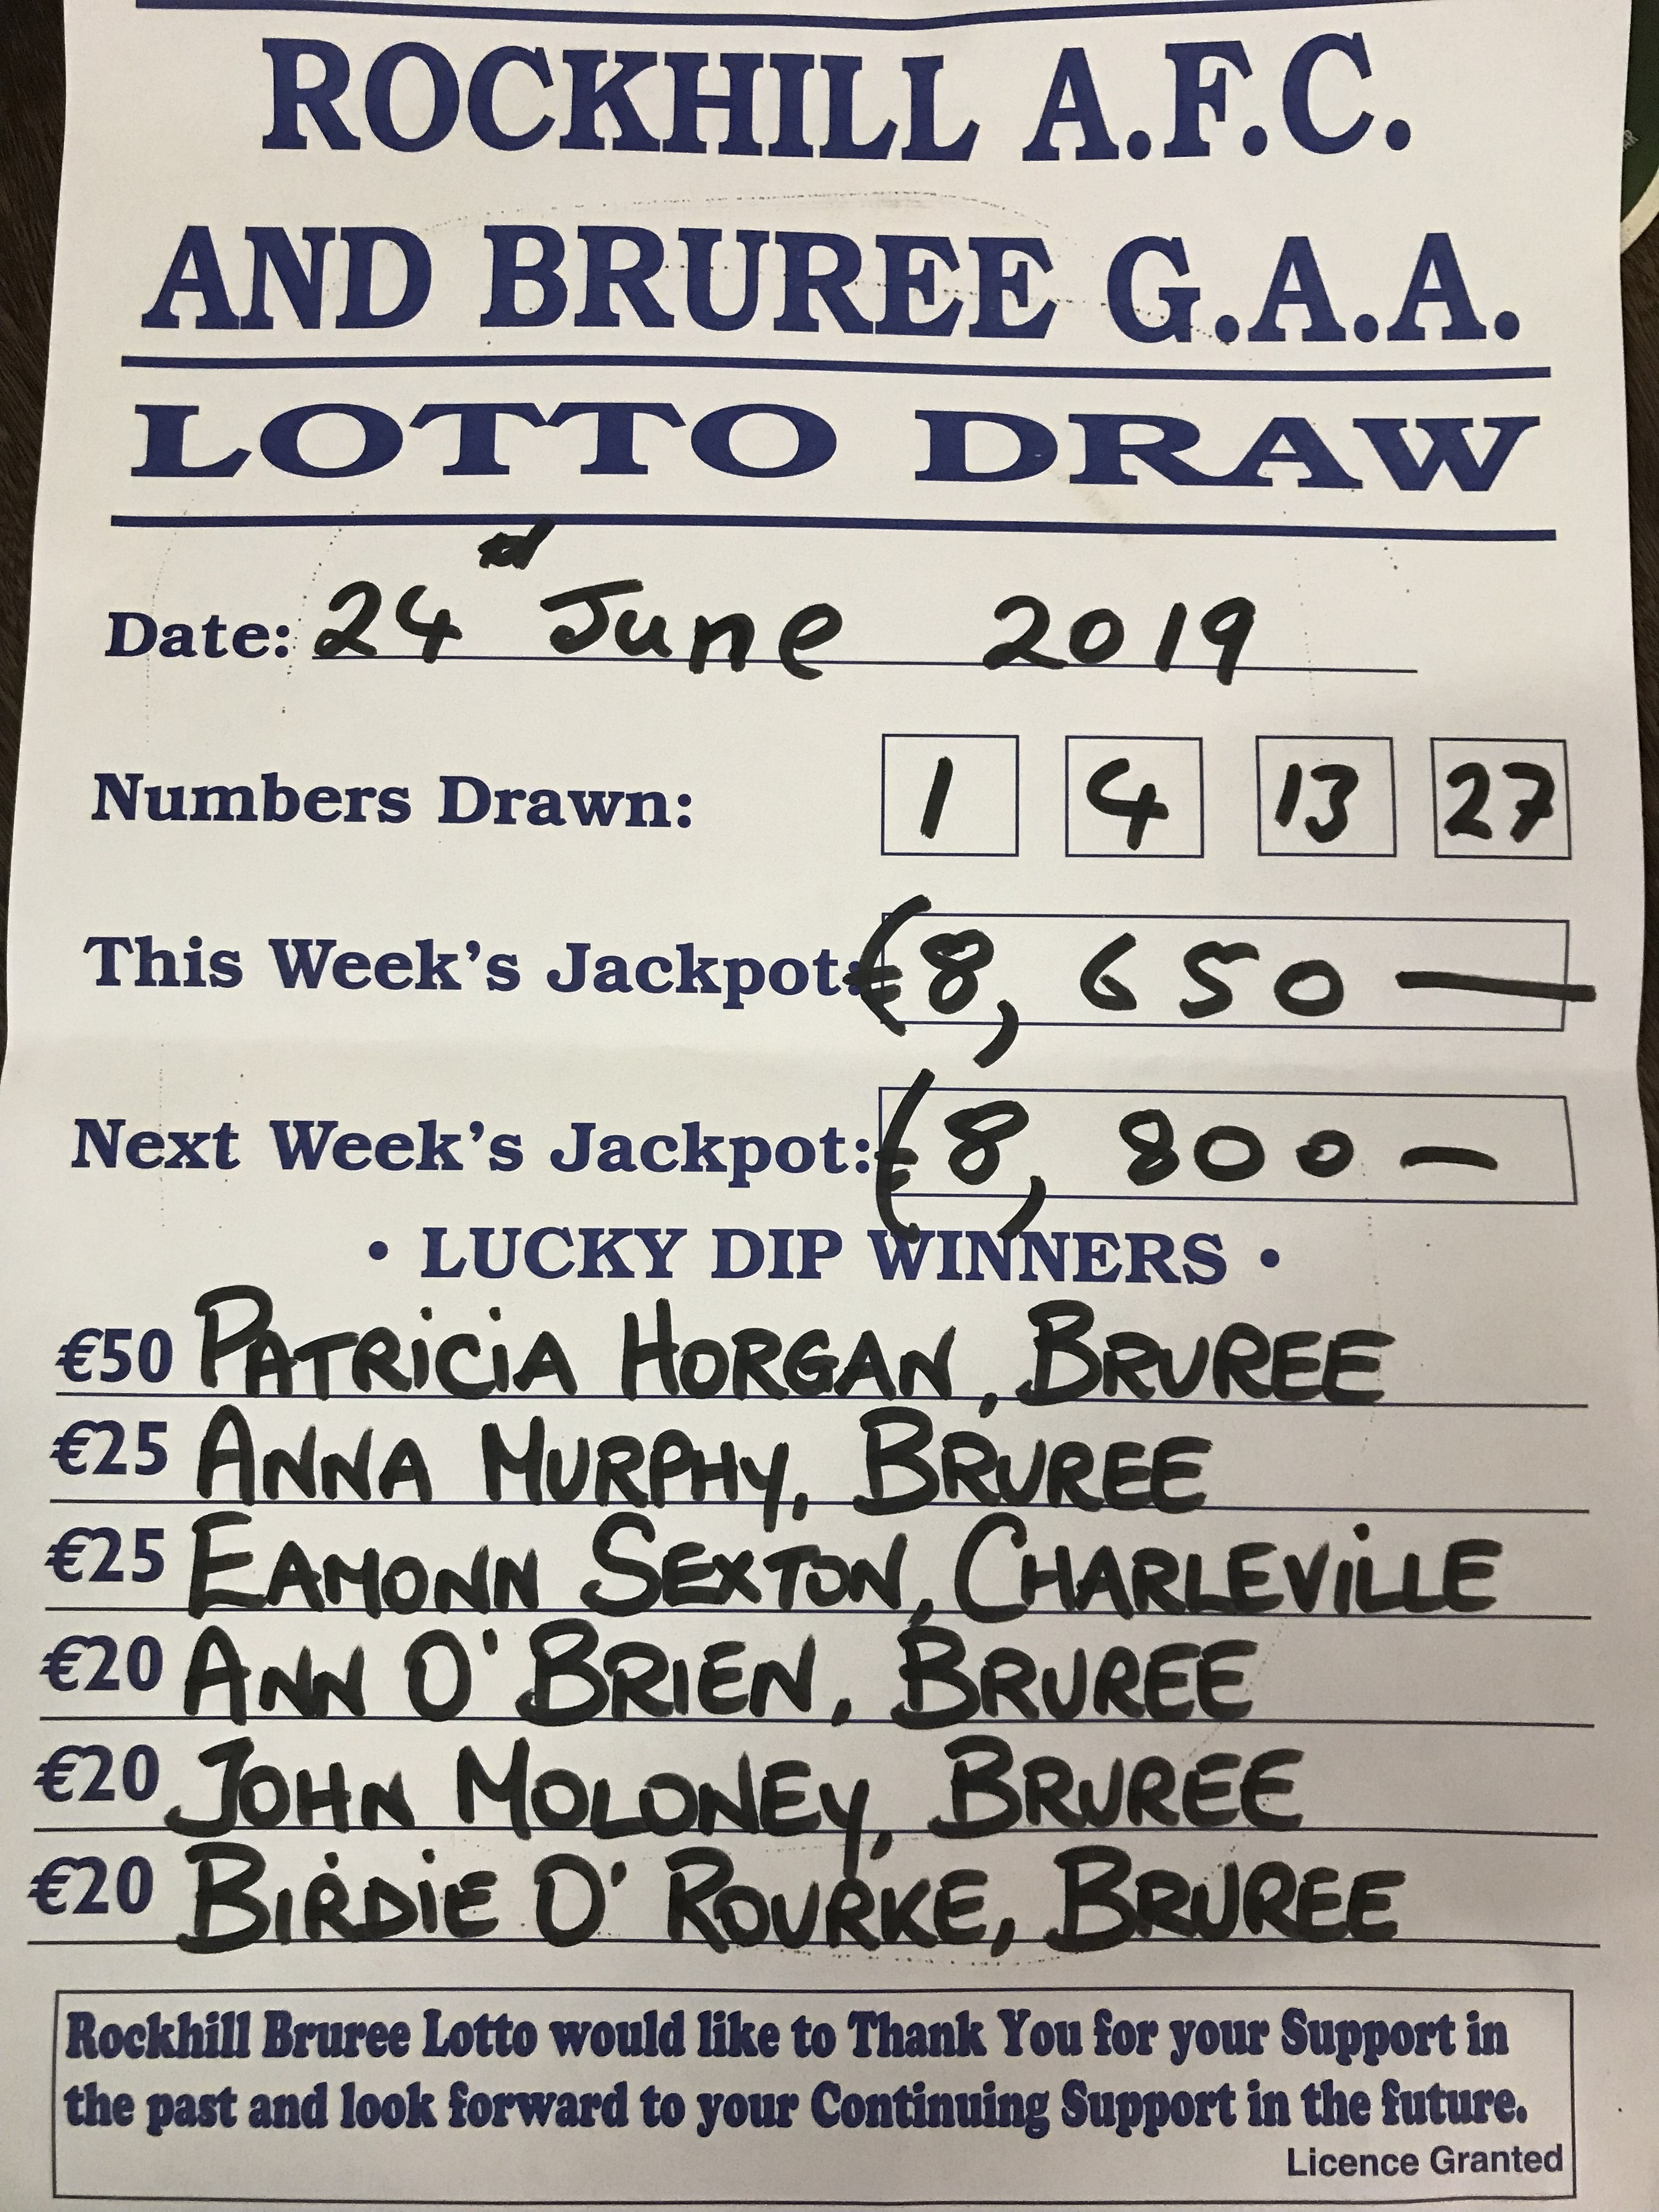 ROCKHILL A.F.C.
AND BRUREE G.A.A.
LOTTO DRAW
Date: 24 rd June 2019
Numbers Drawn: 1 4 13 27
This Week's Jackpot: €8, 650 —
Next Week's Jackpot: €8, 800 —
• LUCKY DIP WINNERS •
€50 PATRICIA HORGAN, BRUREE
€25 ANNA MURPHY, BRUREE
€25 EAMONN SEXTON, CHARLEVILLE
€20 ANN O'BRIEN, BRUREE
€20 JOHN MOLONEY, BRUREE
€20 BIRDIE O'ROURKE, BRUREE
Rockhill Bruree Lotto would like to Thank You for your Support in
the past and look forward to your Continuing Support in the future.
Licence Granted